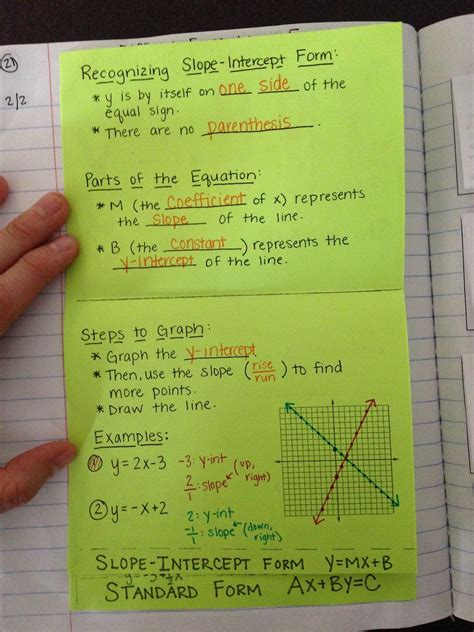 21
2/2
Recognizing Slope-Intercept Form:
* y is by itself on one side of the
equal sign.
* There are no parenthesis.
Parts of the Equation:
* M (the coefficient of x) represents
the slope of the line.
* B (the constant) represents the
y-intercept of the line.
Steps to Graph:
* Graph the y-intercept
* Then, use the slope (rise/run) to find
more points.
* Draw the line.
Examples:
1) y=2x-3 -3: y-int
2/1: slope (up, right)
2) y=-x+2 2: y-int
-1/1: slope (down, right)
SLOPE-INTERCEPT FORM Y=MX+B
STANDARD FORM AX+BY=C